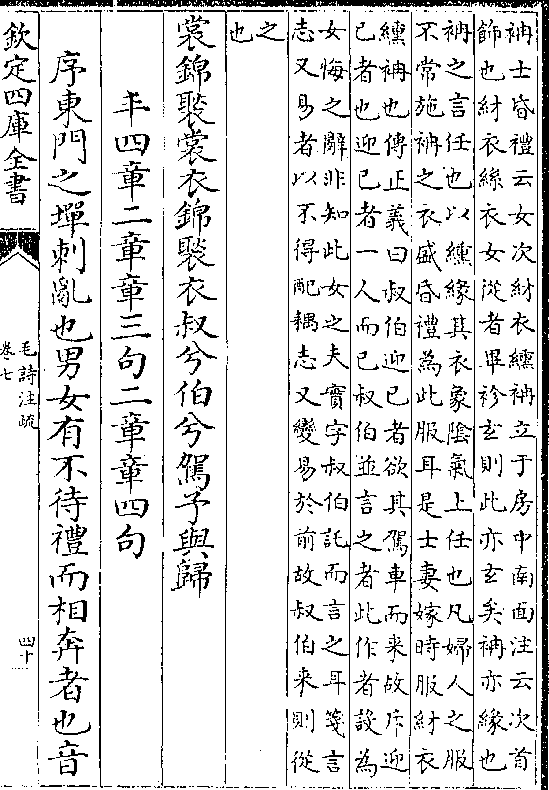 衻士昏禮云女次紂衣纁衻立于房中南面注云次首
飾也紂衣絲衣女從者畢袗玄則此亦玄矣衻亦緣也
衻之言任也以纁緣其衣象陰氣上任也凡婦人之服
不常施衻之衣盛昏禮為此服耳是士妻嫁時服紂衣
纁衻也傳正義曰叔伯迎已者欲其駕車而来故斥迎
已者也迎已者一人而已叔伯並言之者此作者設為
女悔之辭非知此女之夫實字叔伯託而言之耳箋言
志又易者以不得配耦志又變易於前故叔伯来則從
之
也
裳錦褧裳衣錦褧衣叔兮伯兮駕予與歸
丰四章二章章三句二章章四句
序東門之墠刺亂也男女有不待禮而相奔者也音
欽定四庫全書
毛詩注疏
卷七
四十